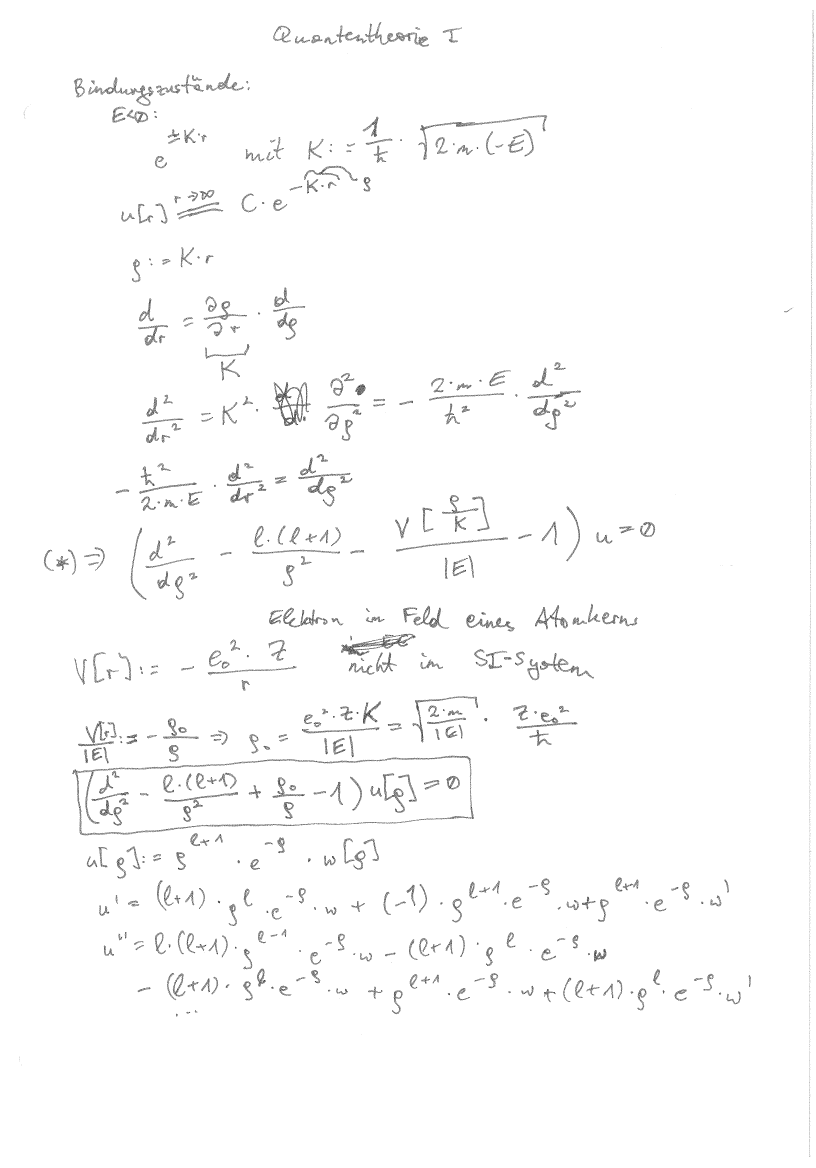 Quantentheorie I
Bindungszustände:
E<0:
e^{±K·r} mit K := 1/ħ · √(2·m·(-E))
u[r] =^{r→∞} C·e^{-K·r} ρ
ρ := K·r
d/dr = ∂ρ/∂r · d/dρ
K
d²/dr² = K² · ∂²/∂ρ² = - 2·m·E/ħ² · d²/dρ²
- ħ²/(2·m·E) · d²/dr² = d²/dρ²
(*) ⇒ (d²/dρ² - l·(l+1)/ρ² - V[ρ/K]/|E| - 1) u = 0
Elektron im Feld eines Atomkerns
V[r] := - e₀²·Z/r nicht im SI-System
V[r]/|E| := - ρ₀/ρ ⇒ ρ₀ = e₀²·Z·K/|E| = √(2·m/|E|) · Z·e₀²/ħ
(d²/dρ² - l·(l+1)/ρ² + ρ₀/ρ - 1) u[ρ] = 0
u[ρ] := ρ^{l+1} · e^{-ρ} · w[ρ]
u' = (l+1)·ρ^l·e^{-ρ}·w + (-1)·ρ^{l+1}·e^{-ρ}·w + ρ^{l+1}·e^{-ρ}·w'
u'' = l·(l+1)·ρ^{l-1}·e^{-ρ}·w - (l+1)·ρ^l·e^{-ρ}·w
- (l+1)·ρ^l·e^{-ρ}·w + ρ^{l+1}·e^{-ρ}·w + (l+1)·ρ^l·e^{-ρ}·w'
...